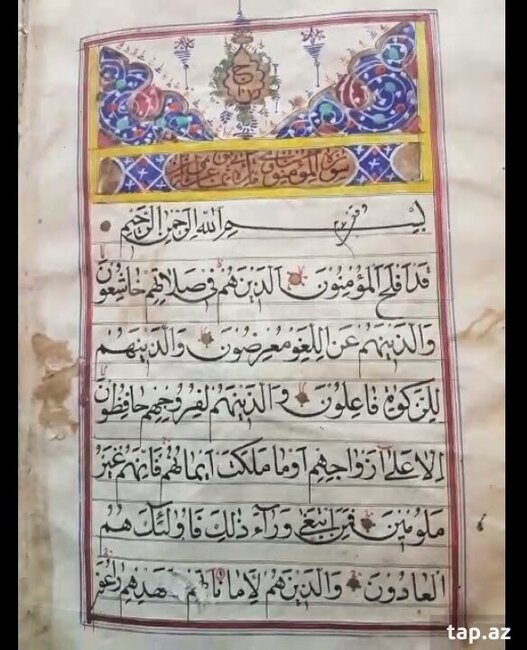 بسم الله الرحمن الرحيم
قد افلح المؤمنون الذينهم في صلاتهم خاشعون
والذينهم عن اللغو معرضون والذينهم
للزكوة فاعلون والذينهم لفروجهم حافظون
الا على ازواجهم او ما ملكت ايمانهم فانهم غير
ملومين فمن ابتغى وراء ذلك فاولئك هم
العادون والذين هم لاماناتهم وعهدهم راعون
tap.az